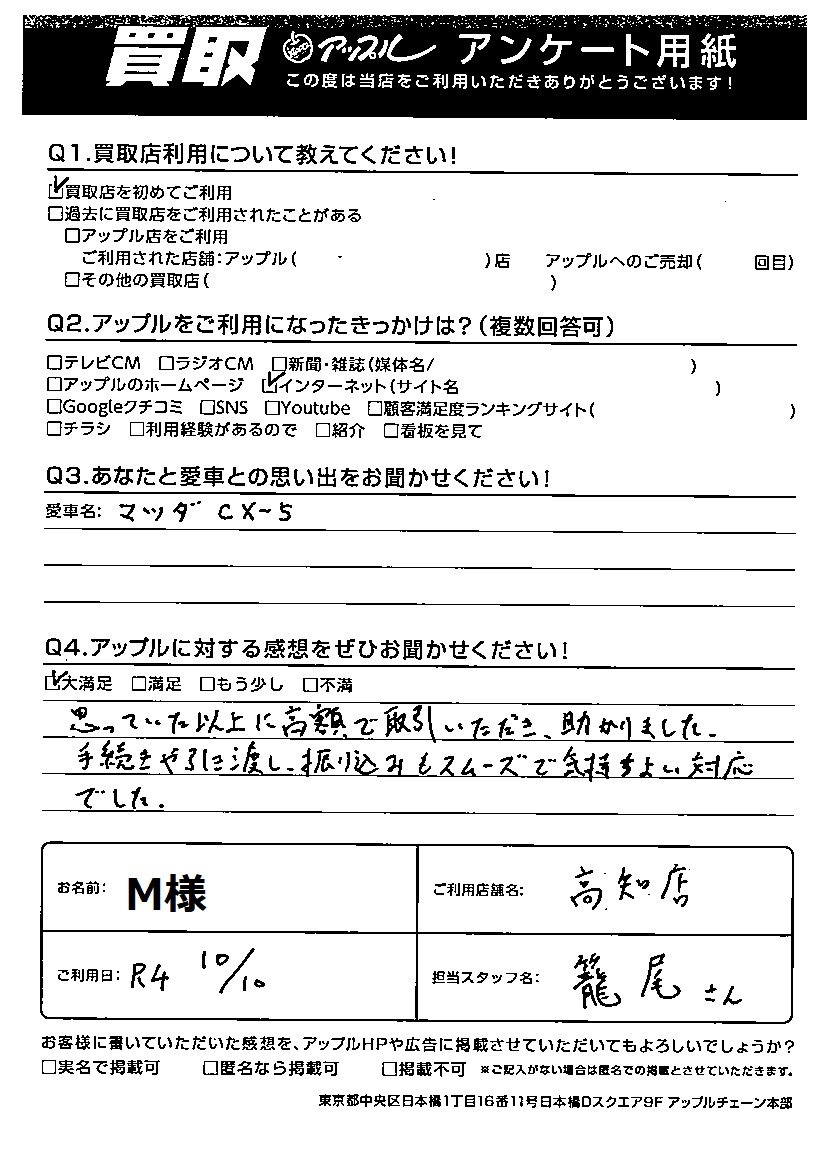 買取 アップル アンケート用紙
この度は当店をご利用いただきありがとうございます!
Q1.買取店利用について教えてください!
☑買取店を初めてご利用
□過去に買取店をご利用されたことがある
□アップル店をご利用
ご利用された店舗:アップル( )店 アップルへのご売却( 回目)
□その他の買取店( )
Q2.アップルをご利用になったきっかけは?(複数回答可)
□テレビCM □ラジオCM □新聞・雑誌(媒体名/ )
□アップルのホームページ ☑インターネット(サイト名 )
□Googleクチコミ □SNS □Youtube □顧客満足度ランキングサイト( )
□チラシ □利用経験があるので □紹介 □看板を見て
Q3.あなたと愛車との思い出をお聞かせください!
愛車名: マツダ CX-5
Q4.アップルに対する感想をぜひお聞かせください!
☑大満足 □満足 □もう少し □不満
思っていた以上に高額で取引いただき、助かりました。
手続きや引き渡し、振り込みもスムーズで気持ちよい対応
でした。
お名前: M様 ご利用店舗名: 高知店
ご利用日: R4 10/10 担当スタッフ名: 籠尾さん
お客様に書いていただいた感想を、アップルHPや広告に掲載させていただいてもよろしいでしょうか?
□実名で掲載可 □匿名なら掲載可 □掲載不可 ※ご記入がない場合は匿名での掲載とさせていただきます。
東京都中央区日本橋1丁目16番11号日本橋Dスクエア9F アップルチェーン本部